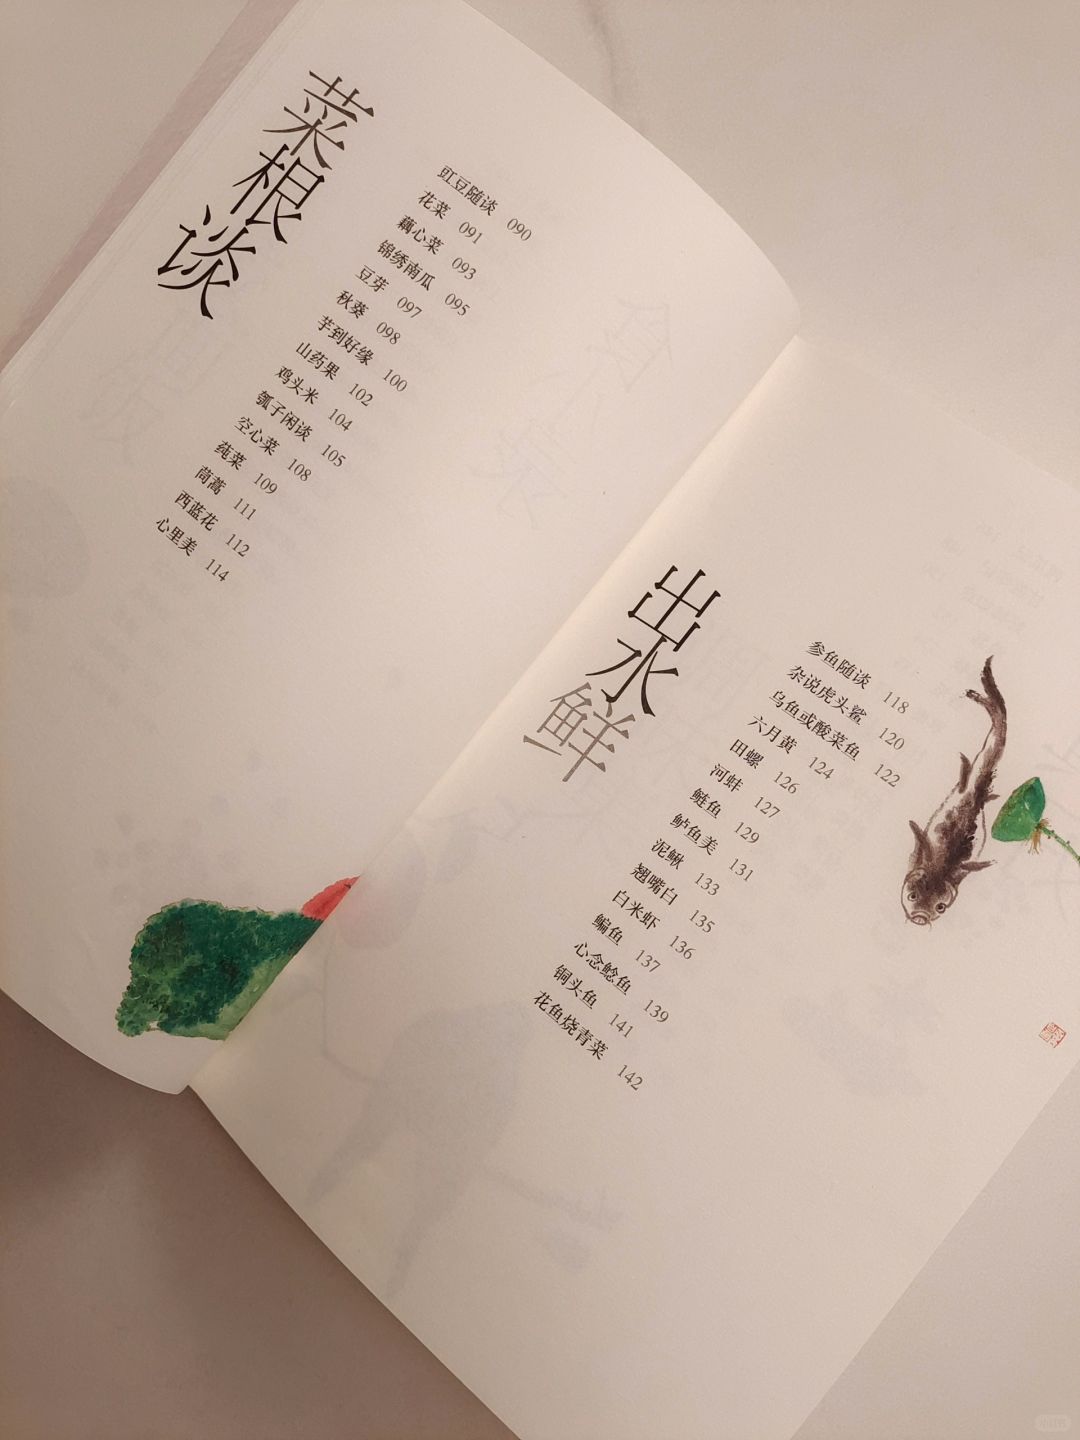 菜根谈
豇豆随谈 090
花菜 091
藕心菜 093
锦绣南瓜 095
豆芽 097
秋葵 098
芋到好缘 100
山药果 102
鸡头米 104
瓠子闲谈 105
空心菜 108
莼菜 109
茼蒿 111
西蓝花 112
心里美 114
出水鲜
参鱼随谈 118
杂说虎头鲨 120
乌鱼或酸菜鱼 122
六月黄 124
田螺 126
河蚌 127
鲢鱼 129
鲈鱼美 131
泥鳅 133
翘嘴白 135
白米虾 136
鳊鱼 137
心念鲶鱼 139
铜头鱼 141
花鱼烧青菜 142